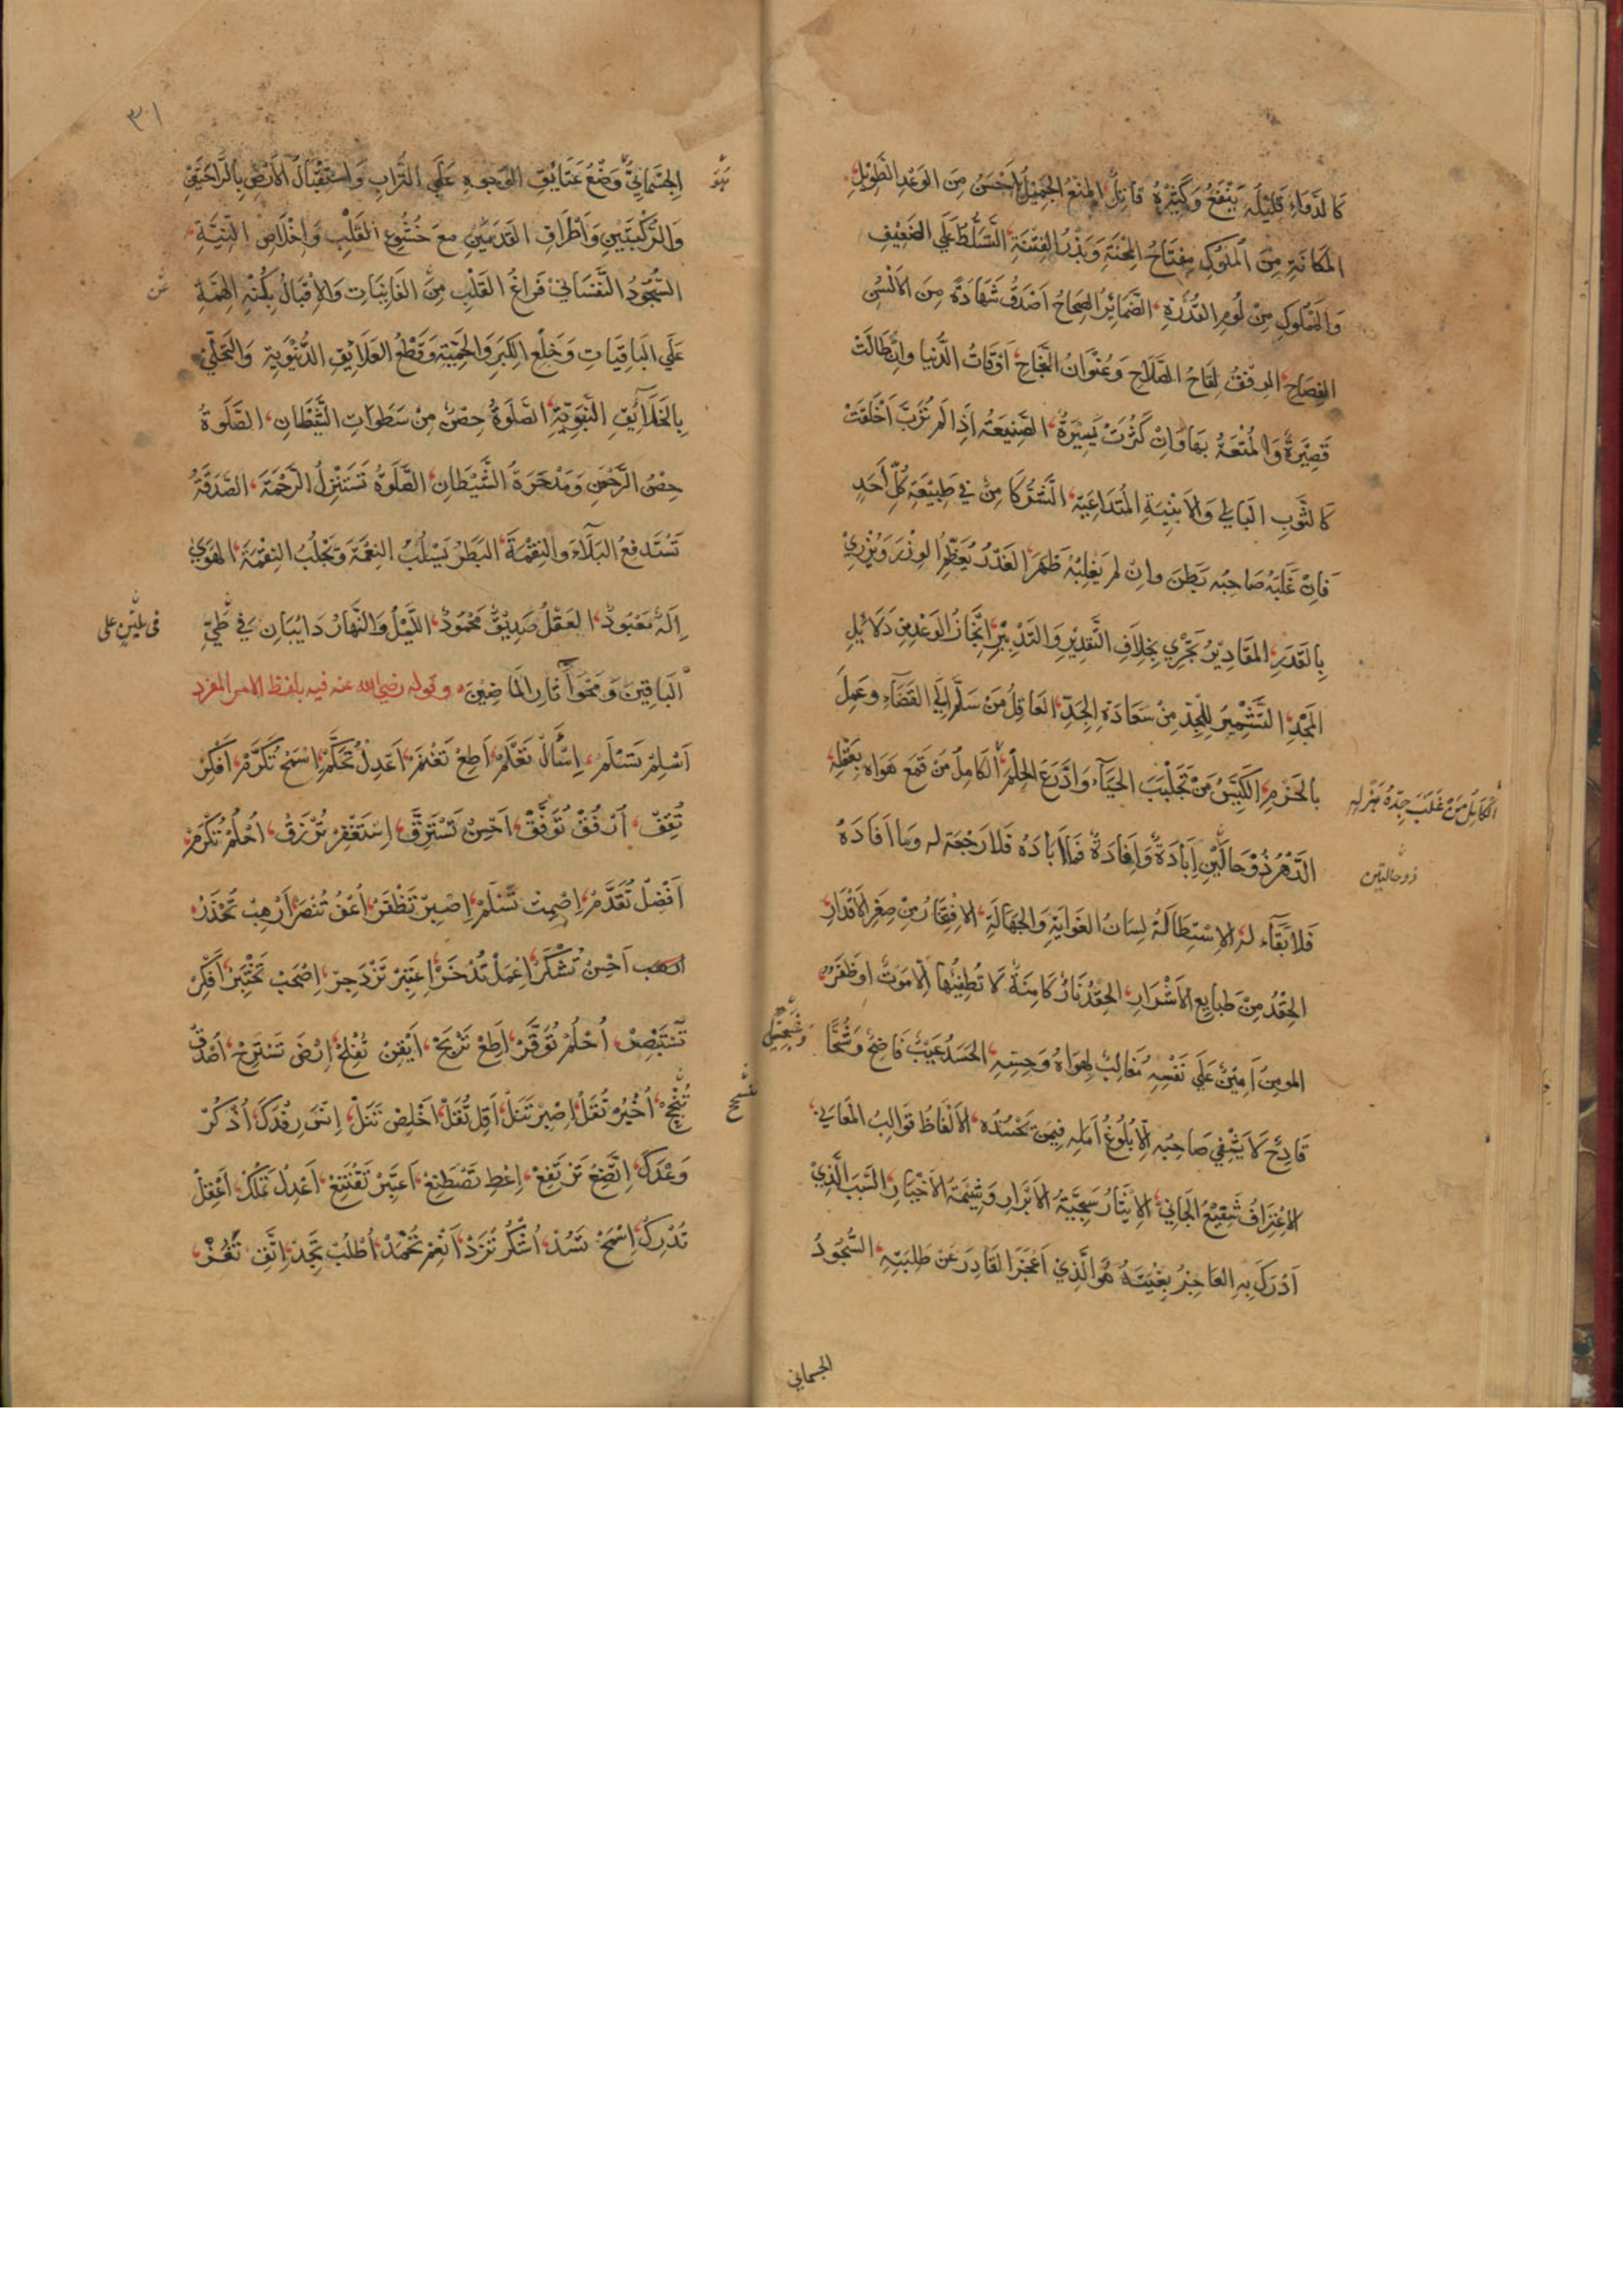 كَالدَّوَاءِ قَلِيلُهُ يَنْفَعُ وَكَثِيرُهُ قَاتِلٌ، المَنْعُ الجَمِيلُ اَحْسَنُ مِنَ الوَعْدِ الطَّوِيلِ،
المَكَانَةِ مِنَ المُلُوكِ مِفْتَاحُ المِحْنَةِ وَبَذْرُ الفِتْنَةِ، التَّسَلُّطُ عَلَي الضَّعِيفِ
وَالمَمْلُوكِ مِنْ لُومِ القُدْرَةِ، الضَّمَائِرُ الصِّحَاحُ اَصْدَقُ شَهَادَةً مِنَ الاَلْسُنِ
الفِصَاحِ، الرِّفْقُ لِقَاحُ الصَّلَاحِ وَعُنْوَانُ النَّجَاحِ، اَوْقَاتُ الدُّنْيَا وَاِنْ طَالَتْ
قَصِيرَةٌ وَالمُتْعَةُ بِهَا وَاِنْ كَثُرَتْ يَسِيرَةٌ، الصَّنِيعَةُ اِذَا لَمْ تُرَبَّ اَخْلَقَتْ
كَالثَّوبِ البَالِي وَالاَبْنِيَةِ المُتَدَاعِيَةِ، الشَّرُّ كَامِنٌ فِي طَبِيعَةِ كُلِّ اَحَدٍ
فَاِنْ غَلَبَهُ صَاحِبُهُ بَطَنَ وَاِنْ لَمْ يَغْلِبْهُ ظَهَرَ، الغَدْرُ يُعَظِّمُ الوِزْرَ وَيُزْرِيْ
بِالقَدْرِ، المَقَادِيرُ تَجْرِي بِخِلَافِ التَّقْدِيرِ وَالتَّدْبِيرِ، اِنْجَازُ الوَعْدِ مِنْ دَلَائِلِ
المَجْدِ، التَّشْمِيرُ لِلْجِدِّ مِنْ سَعَادَةِ الجَدِّ، العَاقِلُ مَنْ سَلَّمَ اِلَي القَضَآءِ وَعَمِلَ
بِالحَزْمِ، الكَيِّسُ مَنْ تَجَلْبَبَ الحَيَآءَ وَادَّرَعَ الحِلْمَ، الكَامِلُ مَنْ قَمَعَ هَوَاهُ بِعَقْلِهِ،
الكَامِلُ مَنْ غَلَبَ جِدُّهُ هَزْلَهُ
الدَّهْرُ ذُوْ حَالَتَيْنِ اِبَادَةٌ وَاِفَادَةٌ فَمَا اَبَادَهُ فَلَا رَجْعَةَ لَهُ وَمَا اَفَادَهُ
ذو حالتين
فَلَا بَقَآءَ لَهُ، الاِسْتِطَالَةُ لِسَانُ الغَوَايَةِ وَالجَهَالَةِ، الاِفْتِخَارُ مِنْ صِغَرِ الاَقْدَارِ،
الحِقْدُ مِنْ طَبَايِعِ الاَشْرَارِ، الحِقْدُ نَارٌ كَامِنَةٌ لَا تُطْفِيْهَا اِلَّا مَوتٌ اَوْ ظَفَرٌ،
المومِنُ اَمِينٌ عَلَي نَفْسِهِ مُغَالِبٌ لِهَوَاهُ وَحِسِّهِ، الحَسَدُ عَيْبٌ فَاضِحٌ وَشُحٌّ
قَادِحٌ لَا يَشْفِي صَاحِبَهُ اِلَّا بُلُوغُ اَمَلِهِ فِيمَنْ يَحْسُدُهُ، الاَلْفَاظُ قَوَالِبُ المَعَانِي،
الاِعْتِرَافُ شَفِيعُ الجَانِي، الاِيْثَارُ سَجِيَّةُ الاَبْرَارِ وَشِيمَةُ الاَخْيَارِ، السَّبَبُ الَّذِيْ
اَدْرَكَ بِهِ العَاجِزُ بِغْيَتَهُ هُوَ الَّذِيْ اَعْجَزَ القَادِرَ عَنْ طَلِبَتِهِ، السُّجُودُ
الجسماني
٣٠١
الجِسْمَانِيُّ وَضْعُ عَتَايِقِ الوُجُوهِ عَلَي التُّرَابِ وَاسْتِقْبَالُ الاَرْضِ بِالرَّاحَتَيْنِ
وَالرُّكْبَتَيْنِ وَاَطْرَافِ القَدَمَيْنِ مَعَ خُشُوعِ القَلْبِ وَاِخْلَاصِ النِّيَّةِ،
السُّجُودُ النَّفْسَانِي فَرَاغُ القَلْبِ مِنَ الفَانِيَاتِ وَالاِقْبَالُ بِكُنْهِ الهِمَّةِ
عَلَي البَاقِيَاتِ وَخَلْعُ الكِبْرِ وَالحَمِيَّةِ وَقَطْعُ العَلَايِقِ الدُّنْيَوِيَّةِ وَالتَّحَلِّي
بِالخَلَآيِقِ النَّبَوِيَّةِ، الصَّلوةُ حِصْنٌ مِنْ سَطَوَاتِ الشَّيْطَانِ، الصَّلَوةُ
حِصْنُ الرَّحْمَنِ وَمَدْحَرَةُ الشَّيْطَانِ، الصَّلَوةُ تَسْتَنْزِلُ الرَّحْمَةَ، الصَّدَقَةُ
تَسْتَدْفِعُ البَلَآءَ وَالنِقْمَةَ، البَطَرُ يَسْلُبُ النِعْمَةَ وَيَجْلُبُ النِقْمَةَ، الهَوَيٰ
اِلَهٌ مَعْبُودٌ، العَقْلُ صَدِيْقٌ مَحْمُودٌ، اللَّيْلُ وَالنَّهَارُ دَايِبَانِ فِي طَيِّ
البَاقِيْنَ وَمَحْوِ آثَارِ المَاضِيْنَ، وقوله رضي الله عنه فيه بلفظ الامر المفرد
اَسْلِمْ تَسْلَمْ، اِسْأَلْ تَعْلَمْ، اَطِعْ تَغْنَمْ، اَعْدِلْ تُحَكَّمْ، اِسْمَحْ تُكَرَّمْ، اَفْكِرْ
تُفِقْ، اُرْفُقْ تُوَفَّقْ، اَحْسِنْ تَسْتَرِقَّ، اِسْتَغْفِرْ تُرْزَقْ، اُحْلُمْ تُكْرَمْ،
اَفْضِلْ تُقَدَّمْ، اِصْمِتْ تَسْلَمْ، اِصْبِرْ تَظْفَرْ، اُعْفُ تُنْصَرْ، اَرْهِبْ تُحْذَرْ،
اَحْسِنْ تُشْكَرْ، اِعْمَلْ تُدْخَرْ، اِعْتَبِرْ تَزْدَجِرْ، اِصْحَبْ تَخْتَبِرْ، اَفْكِرْ
تَسْتَبْصِرْ، اُحْلُمْ تُوَقَّرْ، اَطِعْ تَرْبَحْ، اَيْقِنْ تُفْلِحْ، اِرْضَ تَسْتَرِحْ، اُصْدُقْ
تُنْجِحْ، اُخْبُرْ تَقْلُ، اِصْبِرْ تَنَلْ، اَقِلْ تُقَلْ، اَخْلِصْ تَنَلْ، اِنْسَ رِفْدَكَ، اُذْكُرْ
وَعْدَكَ، اِتَّضِعْ تَرْتَفِعْ، اِعْطِ تَصْطَنِعْ، اَعْتَبِرْ تَقْتَنِعْ، اَعْدِلْ تَمْلِكْ، اَعْقِلْ
تُدْرِكْ، اِسْمَحْ تَسُدْ، اُشْكُرْ تُزَدْ، اَنْعِمْ تُحْمَدْ، اُطْلُبْ تَجِدْ، اِتَّقِ تَفُزْ،